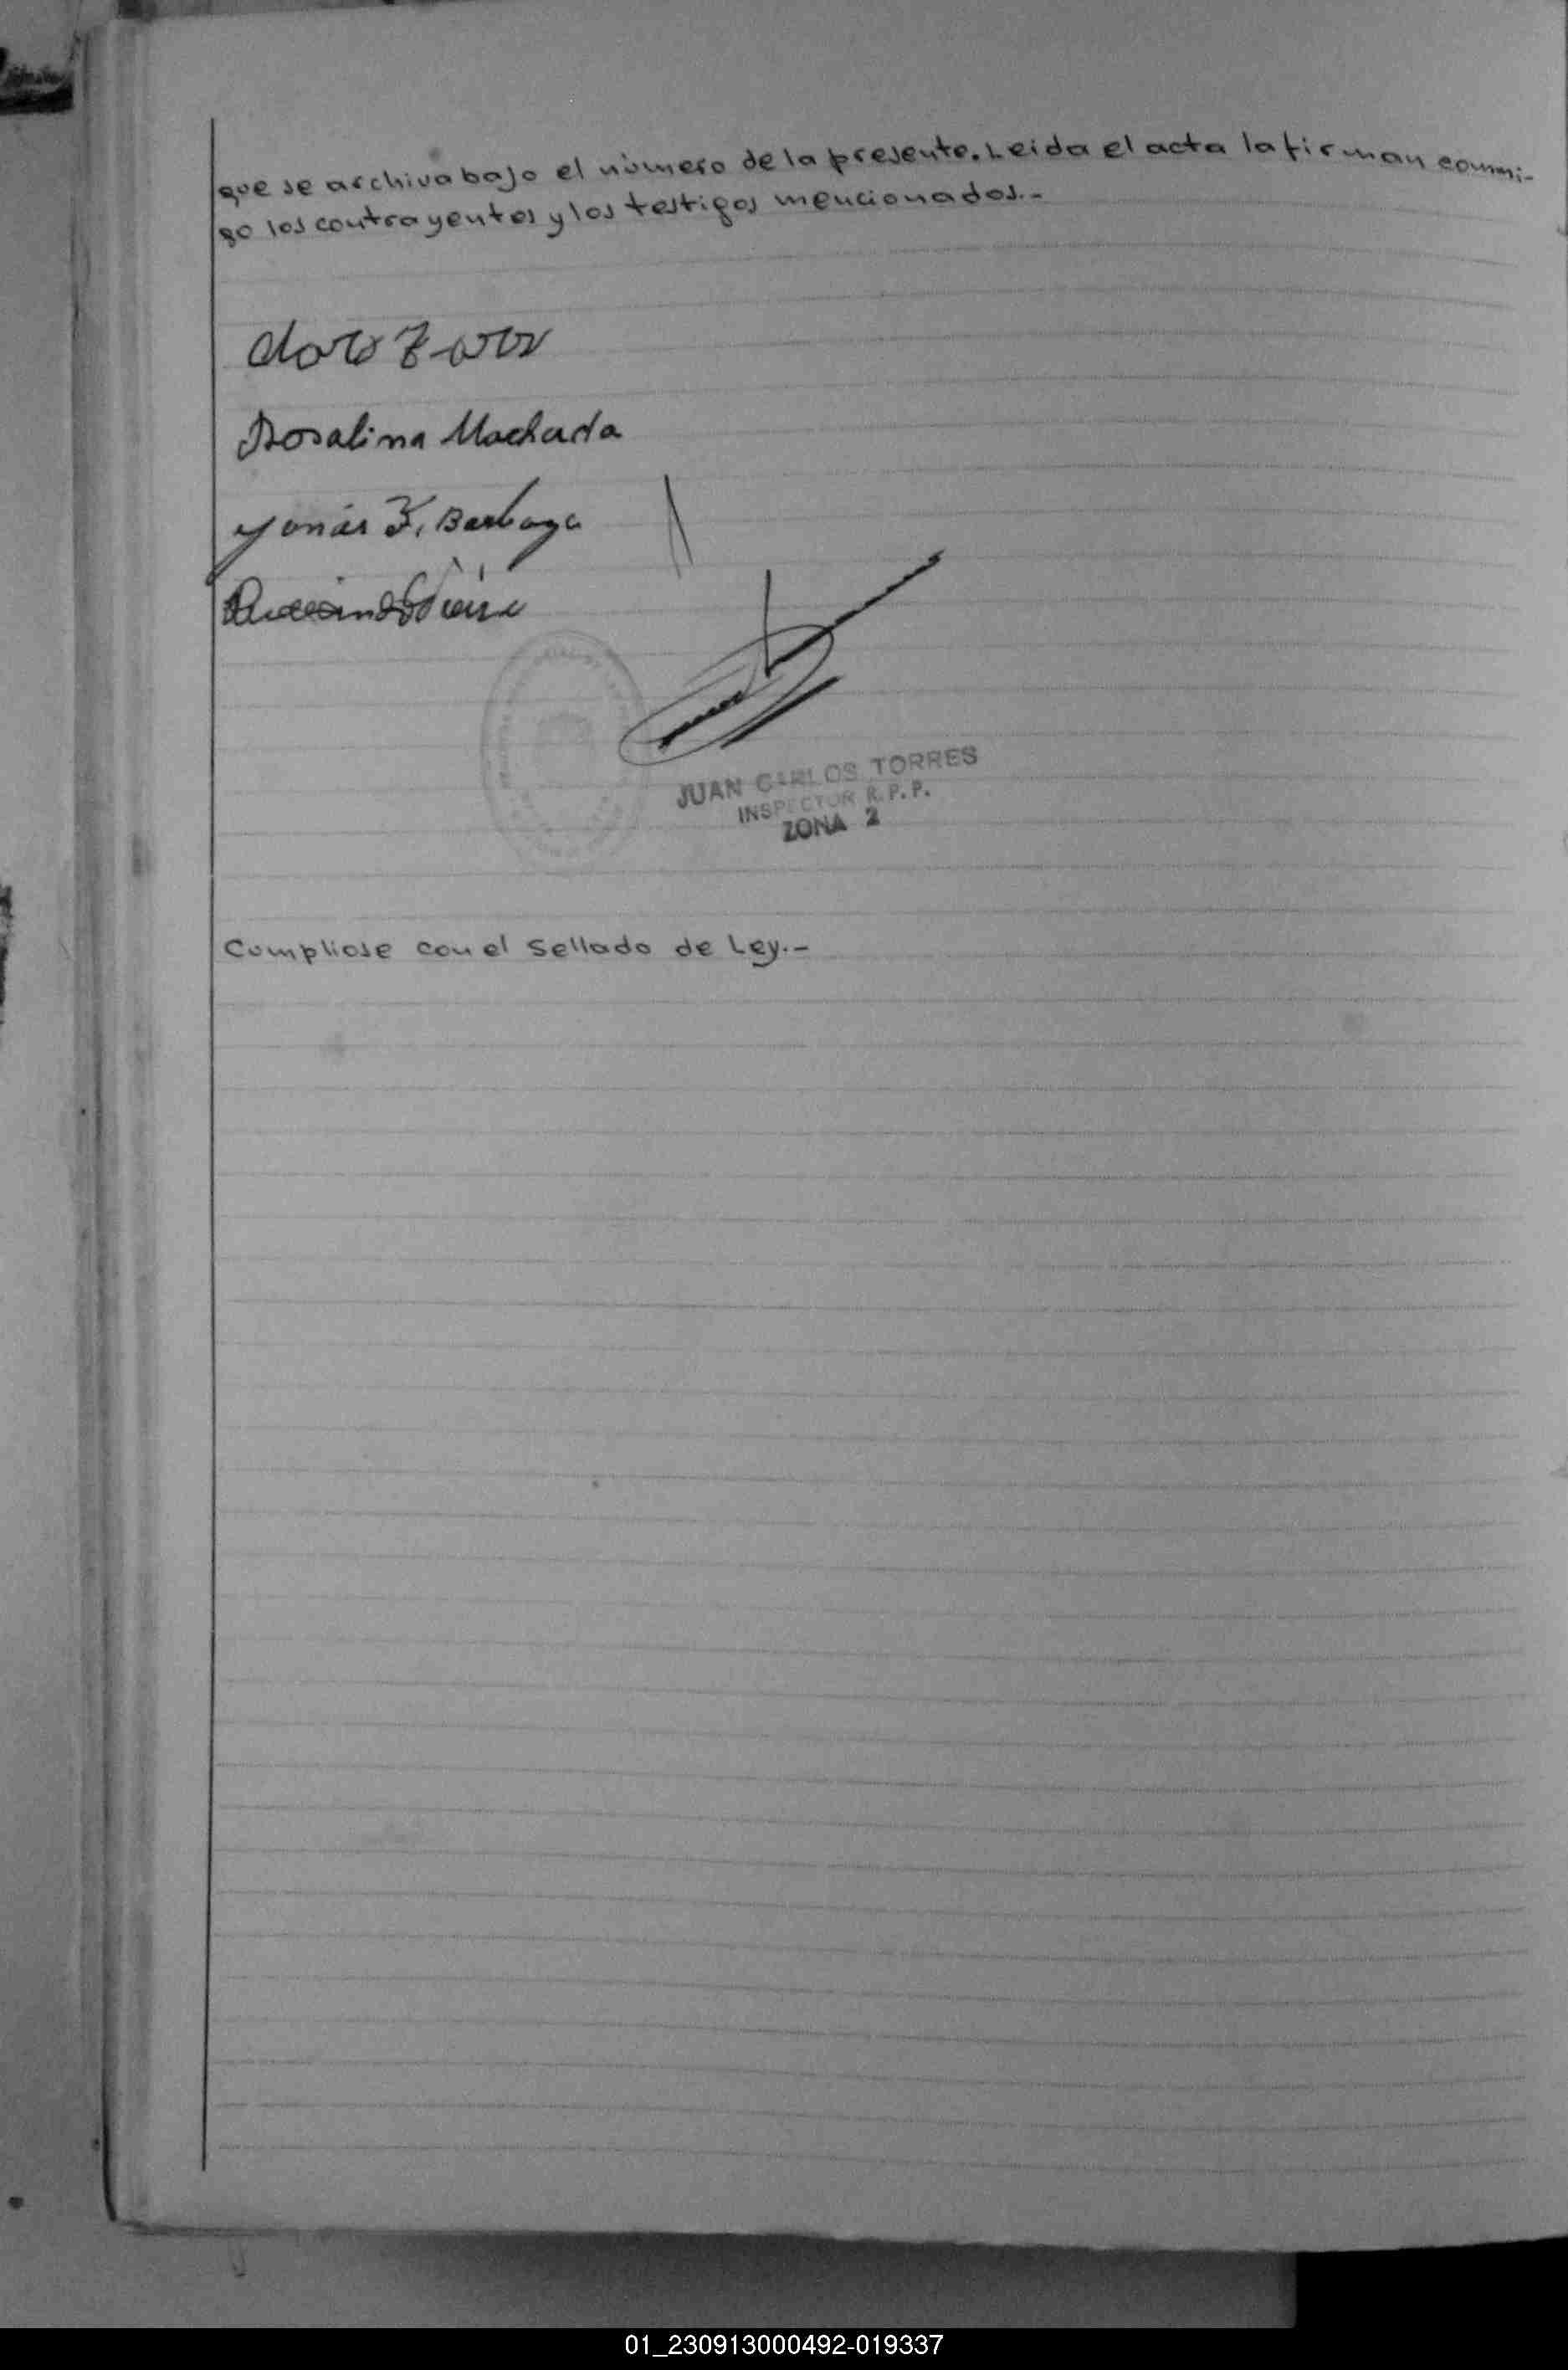 que se archiva bajo el número de la presente. Leida el acta la firman conmi-
go los contrayentes y los testigos mencionados.-
Rosalina Machado
Barboza
JUAN CARLOS TORRES
INSPECTOR R.P.P.
ZONA 2
Cumpliose con el Sellado de Ley.-
01_230913000492-019337